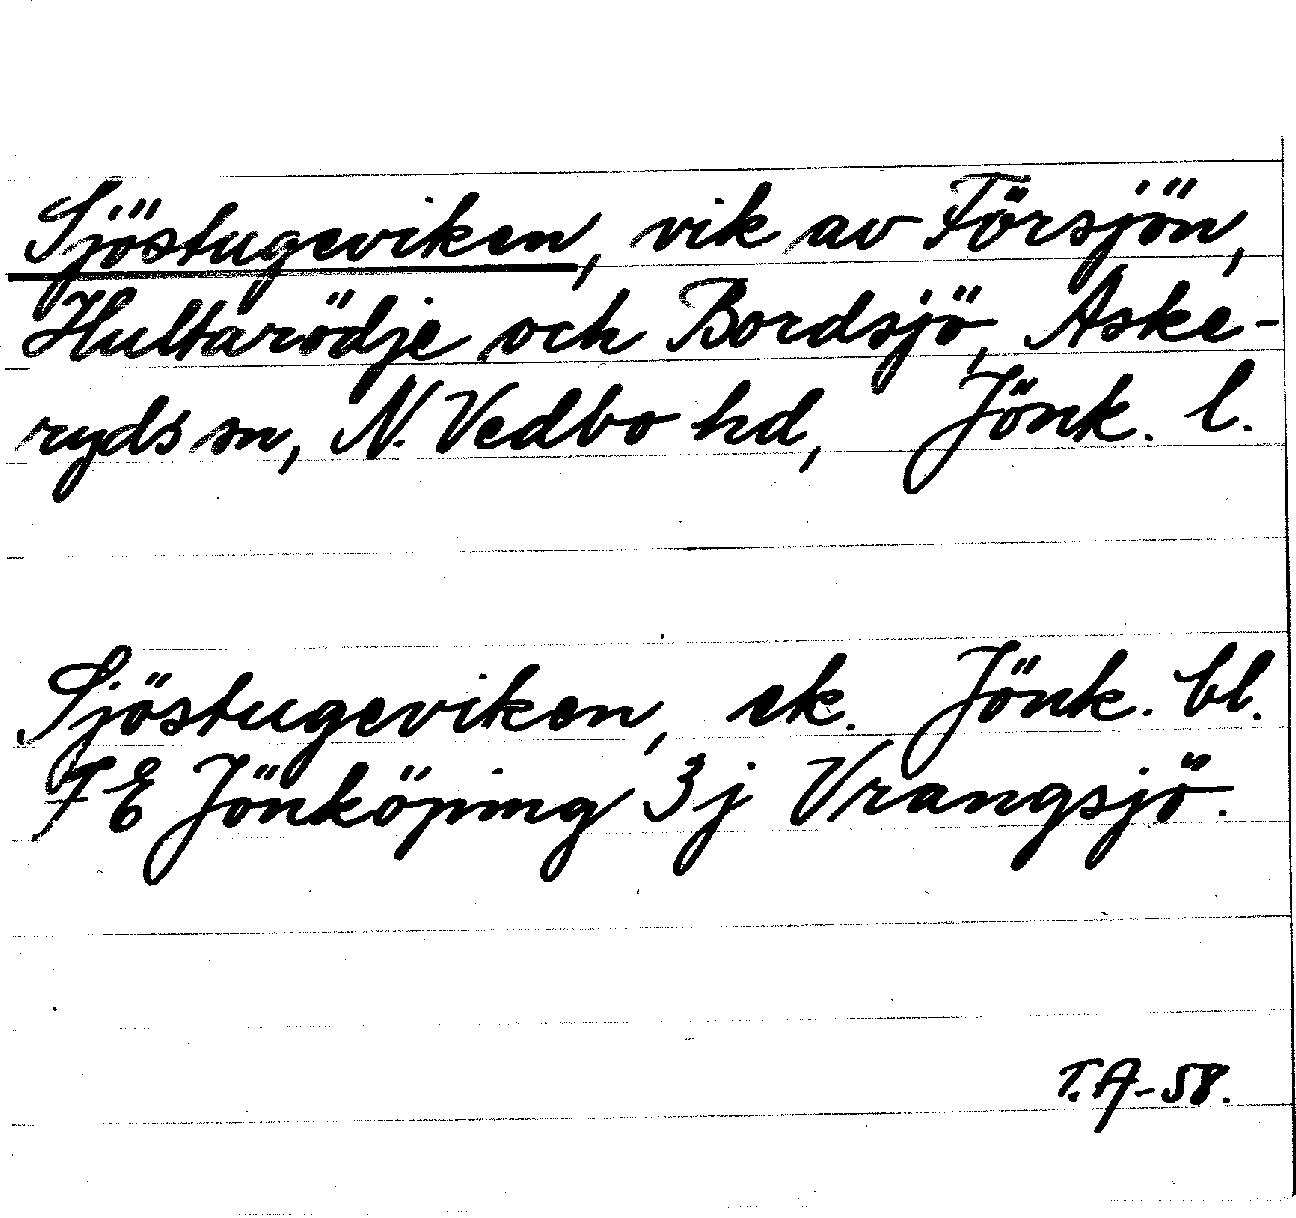 Sjöstugeviken, vik av Försjön,
Hultarödje och Bordsjö, Aske-
ryds sn, N. Vedbo hd, Jönk. l.
Sjöstugeviken, ek. Jönk. bl.
7 E Jönköping 3 j Vrangsjö.
T. A-58.